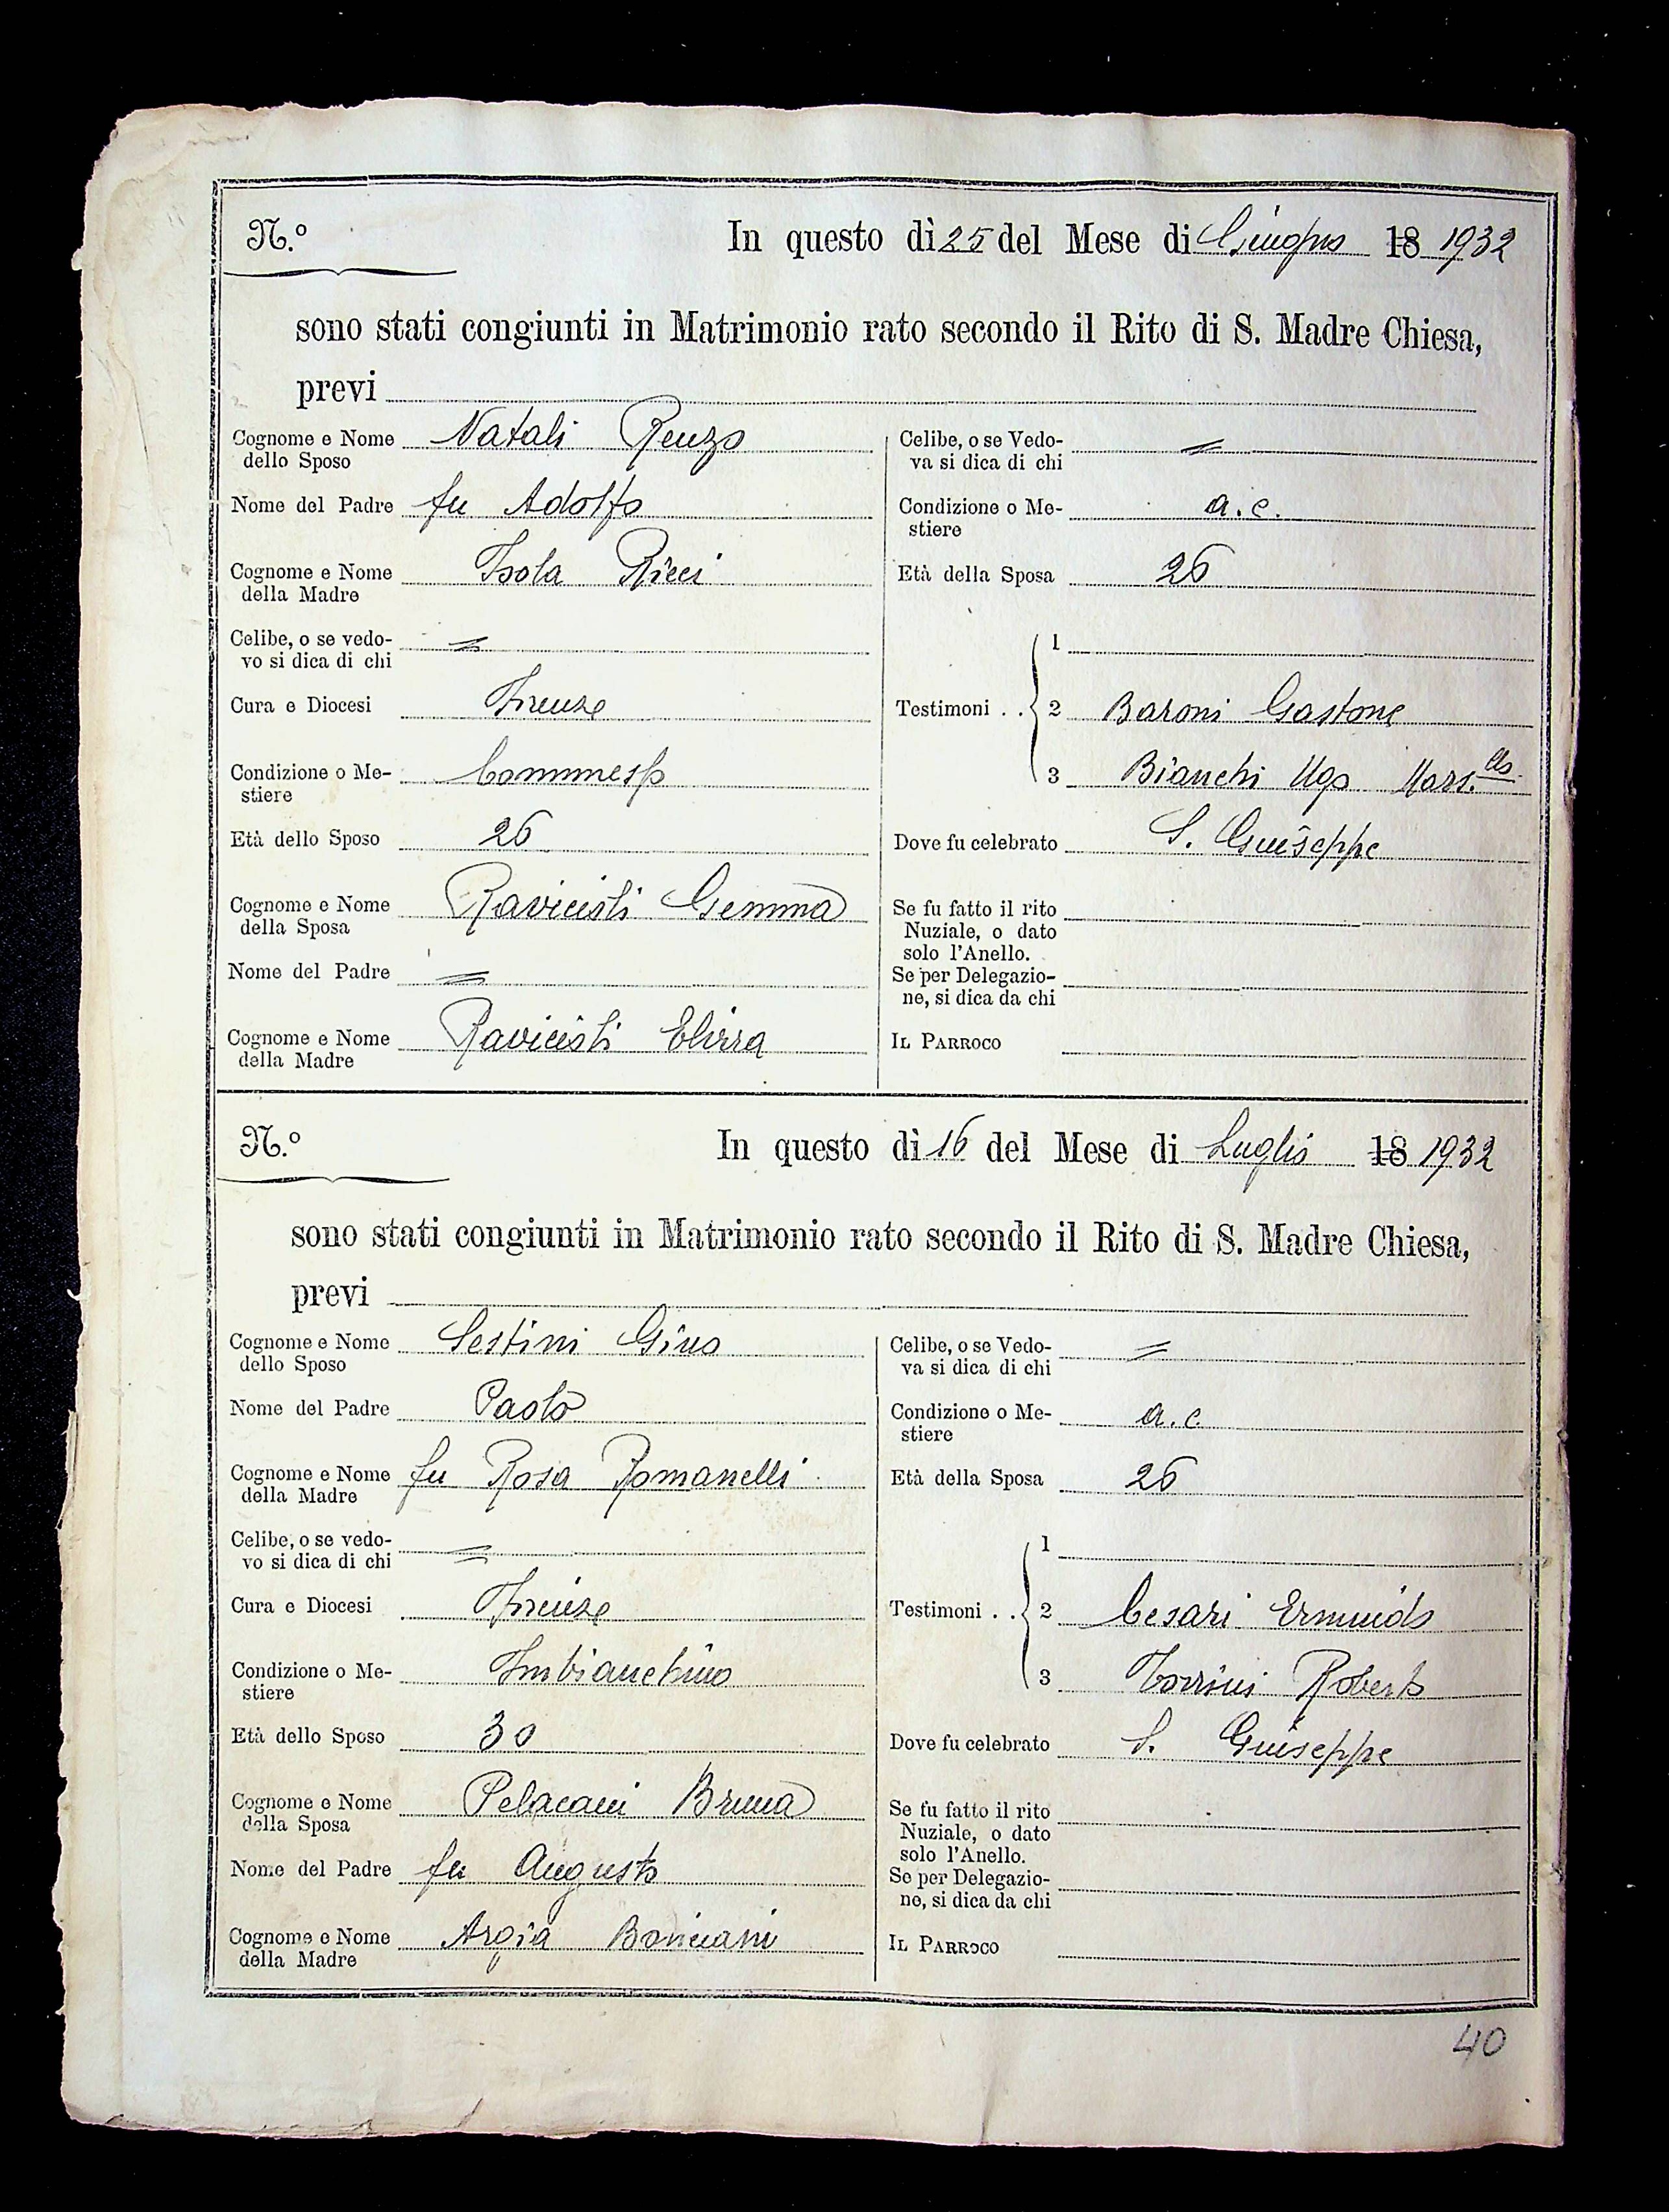 N.º In questo dì 25 del Mese di Giugno 18 1932
sono stati congiunti in Matrimonio rato secondo il Rito di S. Madre Chiesa,
previ
Cognome e Nome Natali Renzo
dello Sposo
Nome del Padre fu Adolfo
Cognome e Nome Isola Ricci
della Madre
Celibe, o se vedo-
vo si dica di chi =
Cura e Diocesi Firenze
Condizione o Me- Commesso
stiere
Età dello Sposo 26
Cognome e Nome Gemma
della Sposa
Nome del Padre =
Cognome e Nome Elvira
della Madre
Celibe, o se Vedo- =
va si dica di chi
Condizione o Me- a.c.
stiere
Età della Sposa 26
1
Testimoni . . 2 Baroni Gastone
3 Bianchi Ugo
Dove fu celebrato S. Giuseppe
Se fu fatto il rito
Nuziale, o dato
solo l'Anello.
Se per Delegazio-
ne, si dica da chi
IL PARROCO
N.º In questo dì 16 del Mese di Luglio 18 1932
sono stati congiunti in Matrimonio rato secondo il Rito di S. Madre Chiesa,
previ
Cognome e Nome Sestini Gino
dello Sposo
Nome del Padre Paolo
Cognome e Nome fu Rosa Romanelli
della Madre
Celibe, o se vedo- =
vo si dica di chi
Cura e Diocesi Firenze
Condizione o Me- Imbianchino
stiere
Età dello Sposo 30
Cognome e Nome Pelacani Bruna
della Sposa
Nome del Padre fu Augusto
Cognome e Nome Argia Bonciani
della Madre
Celibe, o se Vedo- =
va si dica di chi
Condizione o Me- a.c.
stiere
Età della Sposa 26
1
Testimoni . . 2 Cesari Ermindo
3 Torrini Roberto
Dove fu celebrato S. Giuseppe
Se fu fatto il rito
Nuziale, o dato
solo l'Anello.
Se per Delegazio-
ne, si dica da chi
IL PARROCO
40